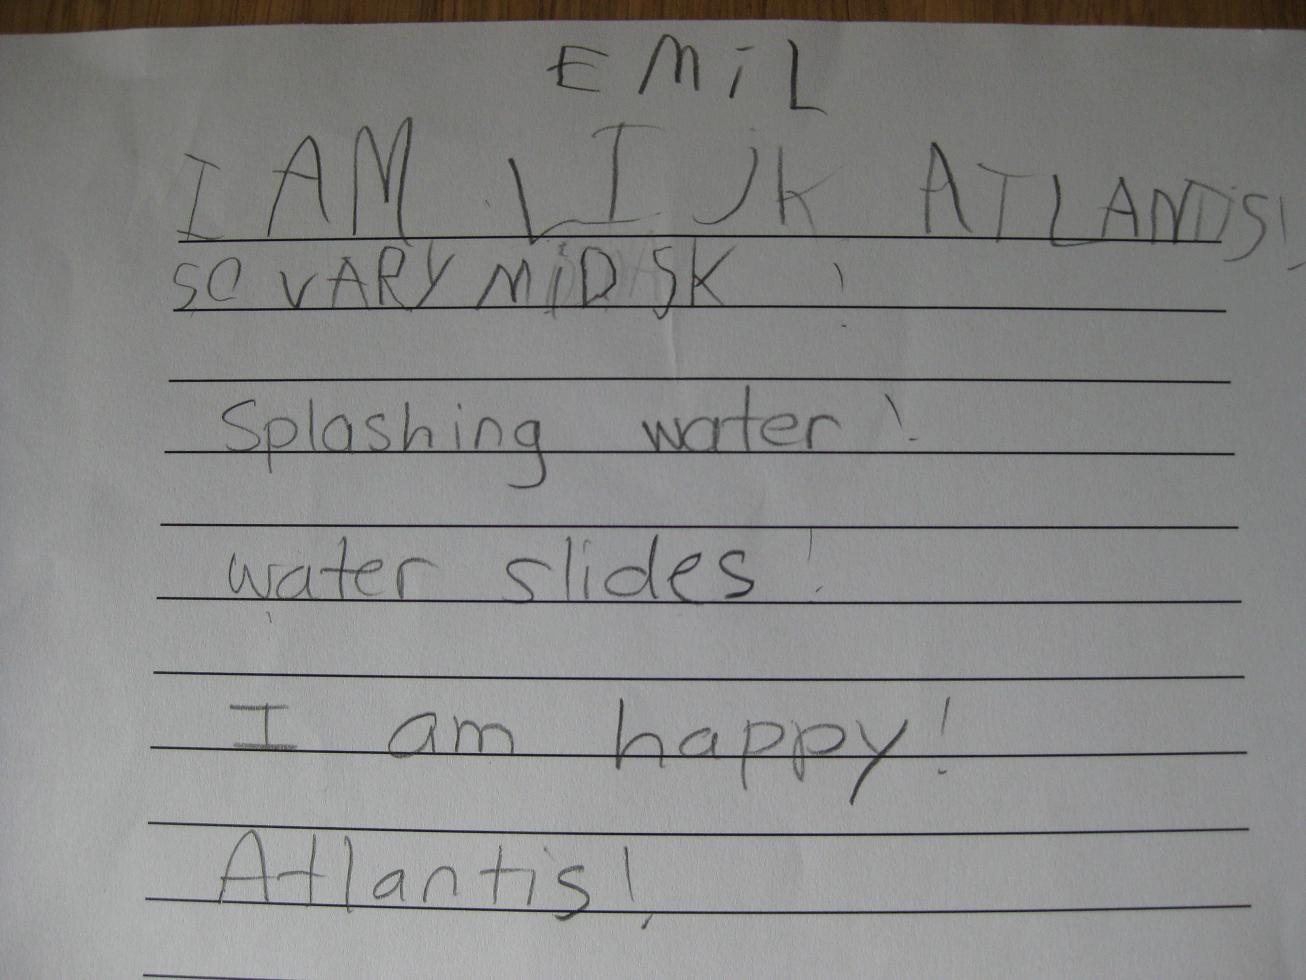 EMiL
I AM LIJK ATLANTIS!
SO VARY MiDSK !
Splashing water!
water slides!
I am happy!
Atlantis!